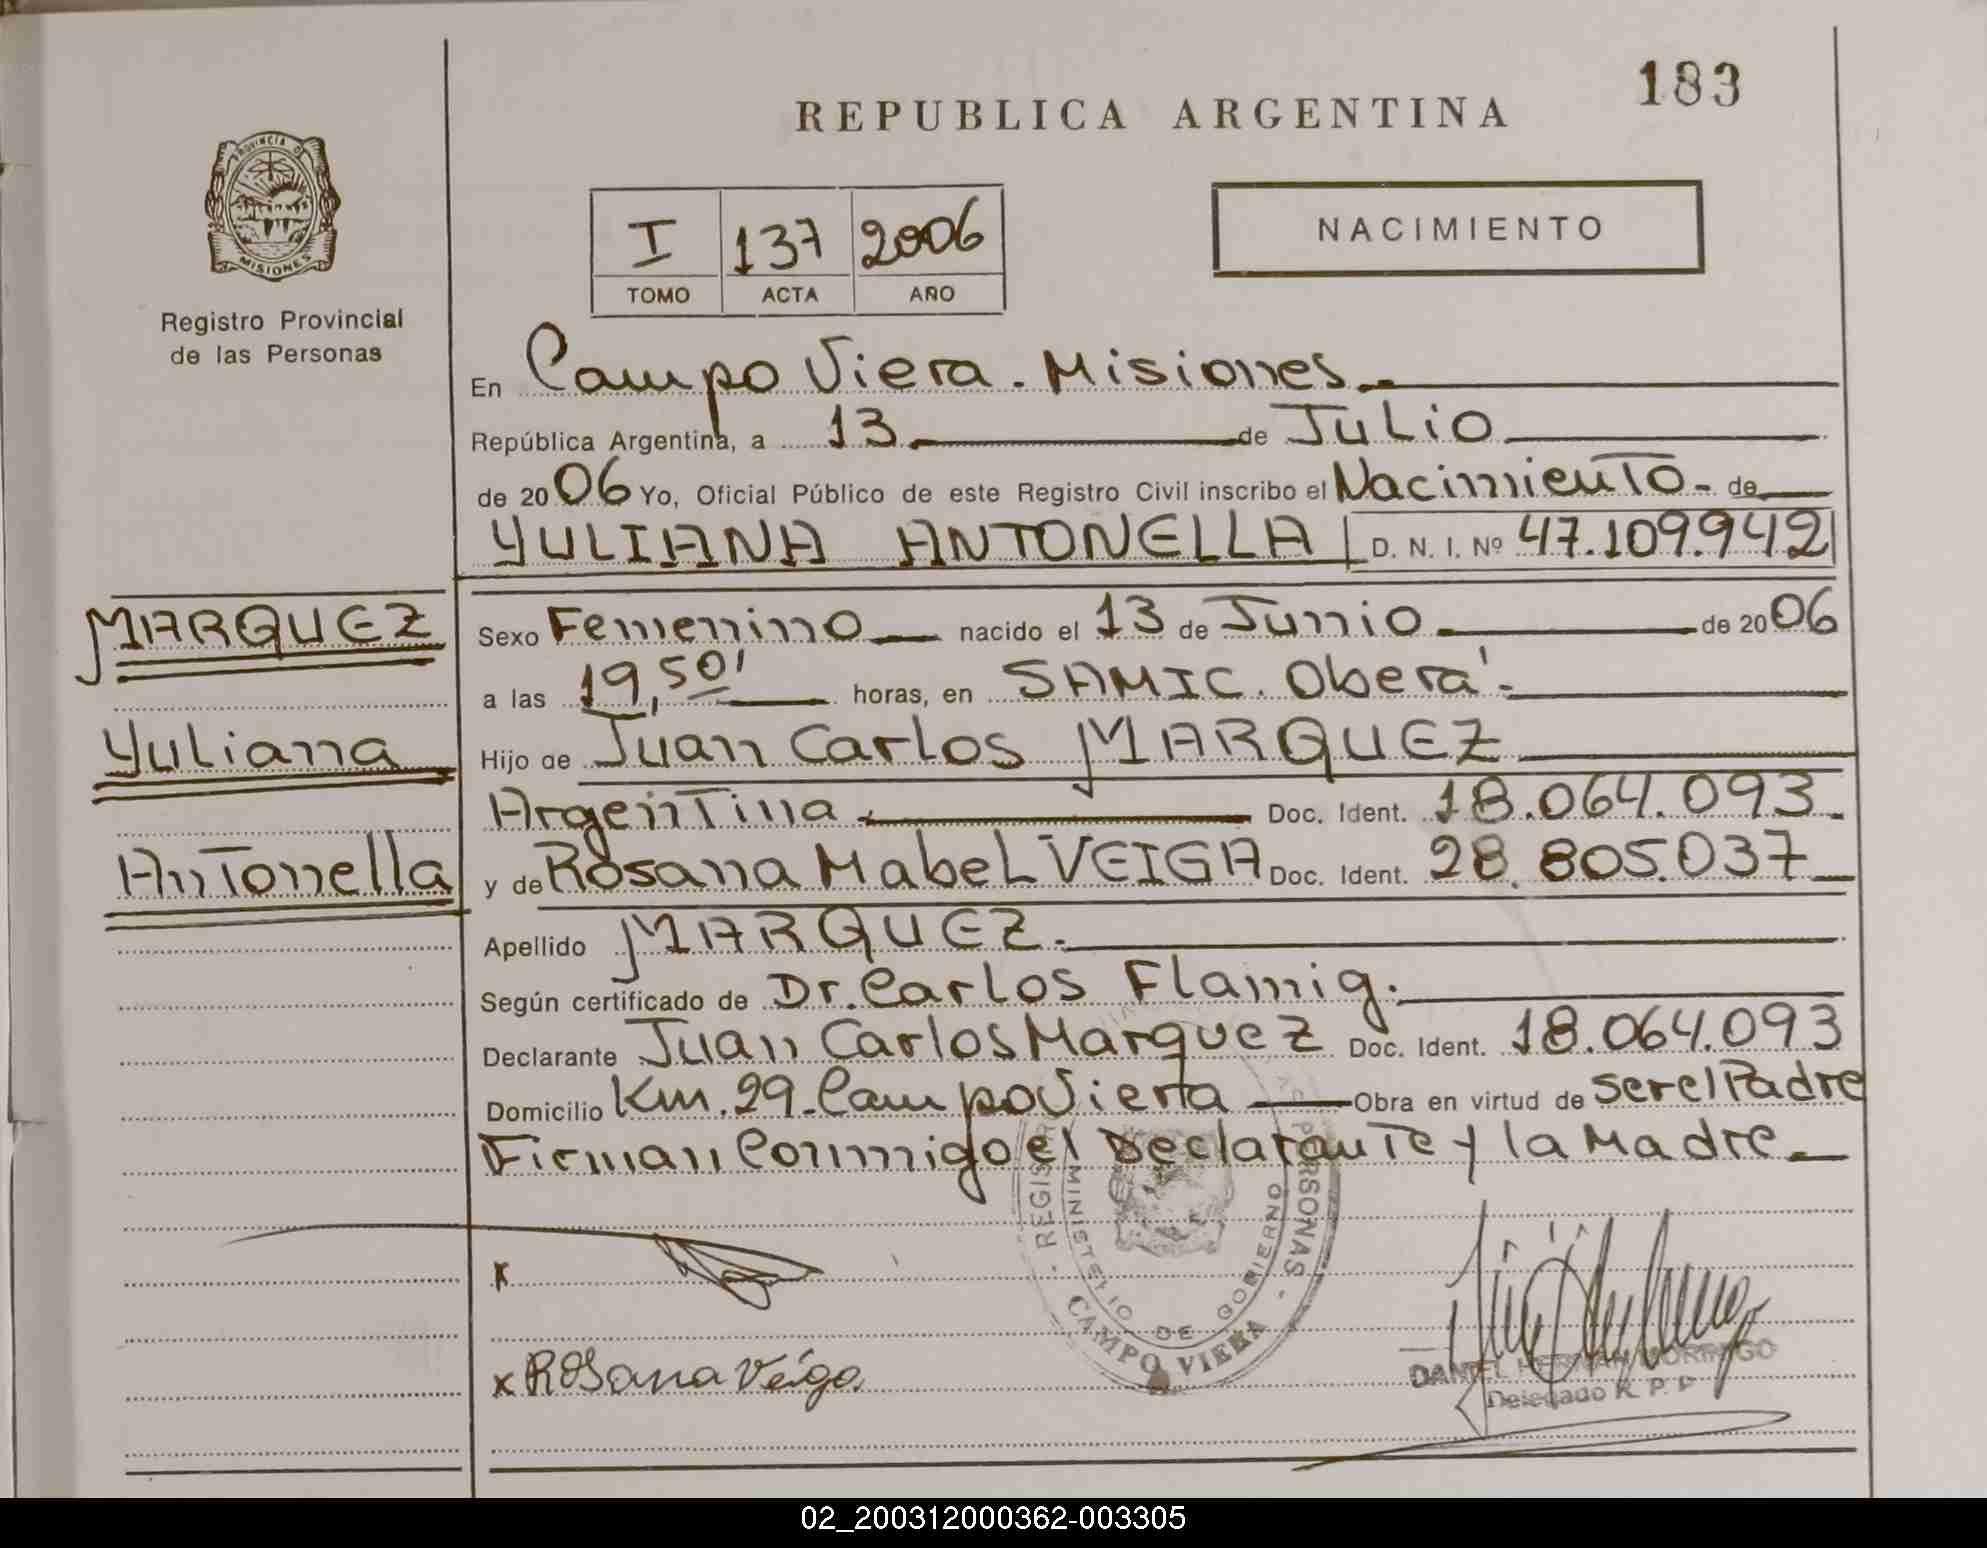 183
REPUBLICA ARGENTINA
PROVINCIA DE
MISIONES
Registro Provincial
de las Personas
I 137 2006
TOMO ACTA AÑO
NACIMIENTO
En Campo Viera. Misiones.
República Argentina, a 13 de Julio
de 2006 Yo, Oficial Público de este Registro Civil inscribo el Nacimiento - de
YULIANA ANTONELLA D. N. I. Nº 47.109.942
MARQUEZ
Yuliana
Antonella
Sexo Femenino nacido el 13 de Junio de 2006
a las 19,50' horas, en SAMIC. Oberá -
Hijo de Juan Carlos MARQUEZ
Argentina Doc. Ident. 18.064.093
y de Rosana Mabel VEIGA Doc. Ident. 28.805.037
Apellido MARQUEZ.
Según certificado de Dr. Carlos Flamig.
Declarante Juan Carlos Marquez Doc. Ident. 18.064.093
Domicilio Km. 29 - Campo Viera Obra en virtud de ser el Padre
Firman Conmigo el Declarante y la Madre.
x
x Rosana Veiga
MINISTERIO DE GOBIERNO
PERSONAS
CAMPO VIERA
DANIEL HERNAN MORINIGO
Delegado R. P. P
02_200312000362-003305